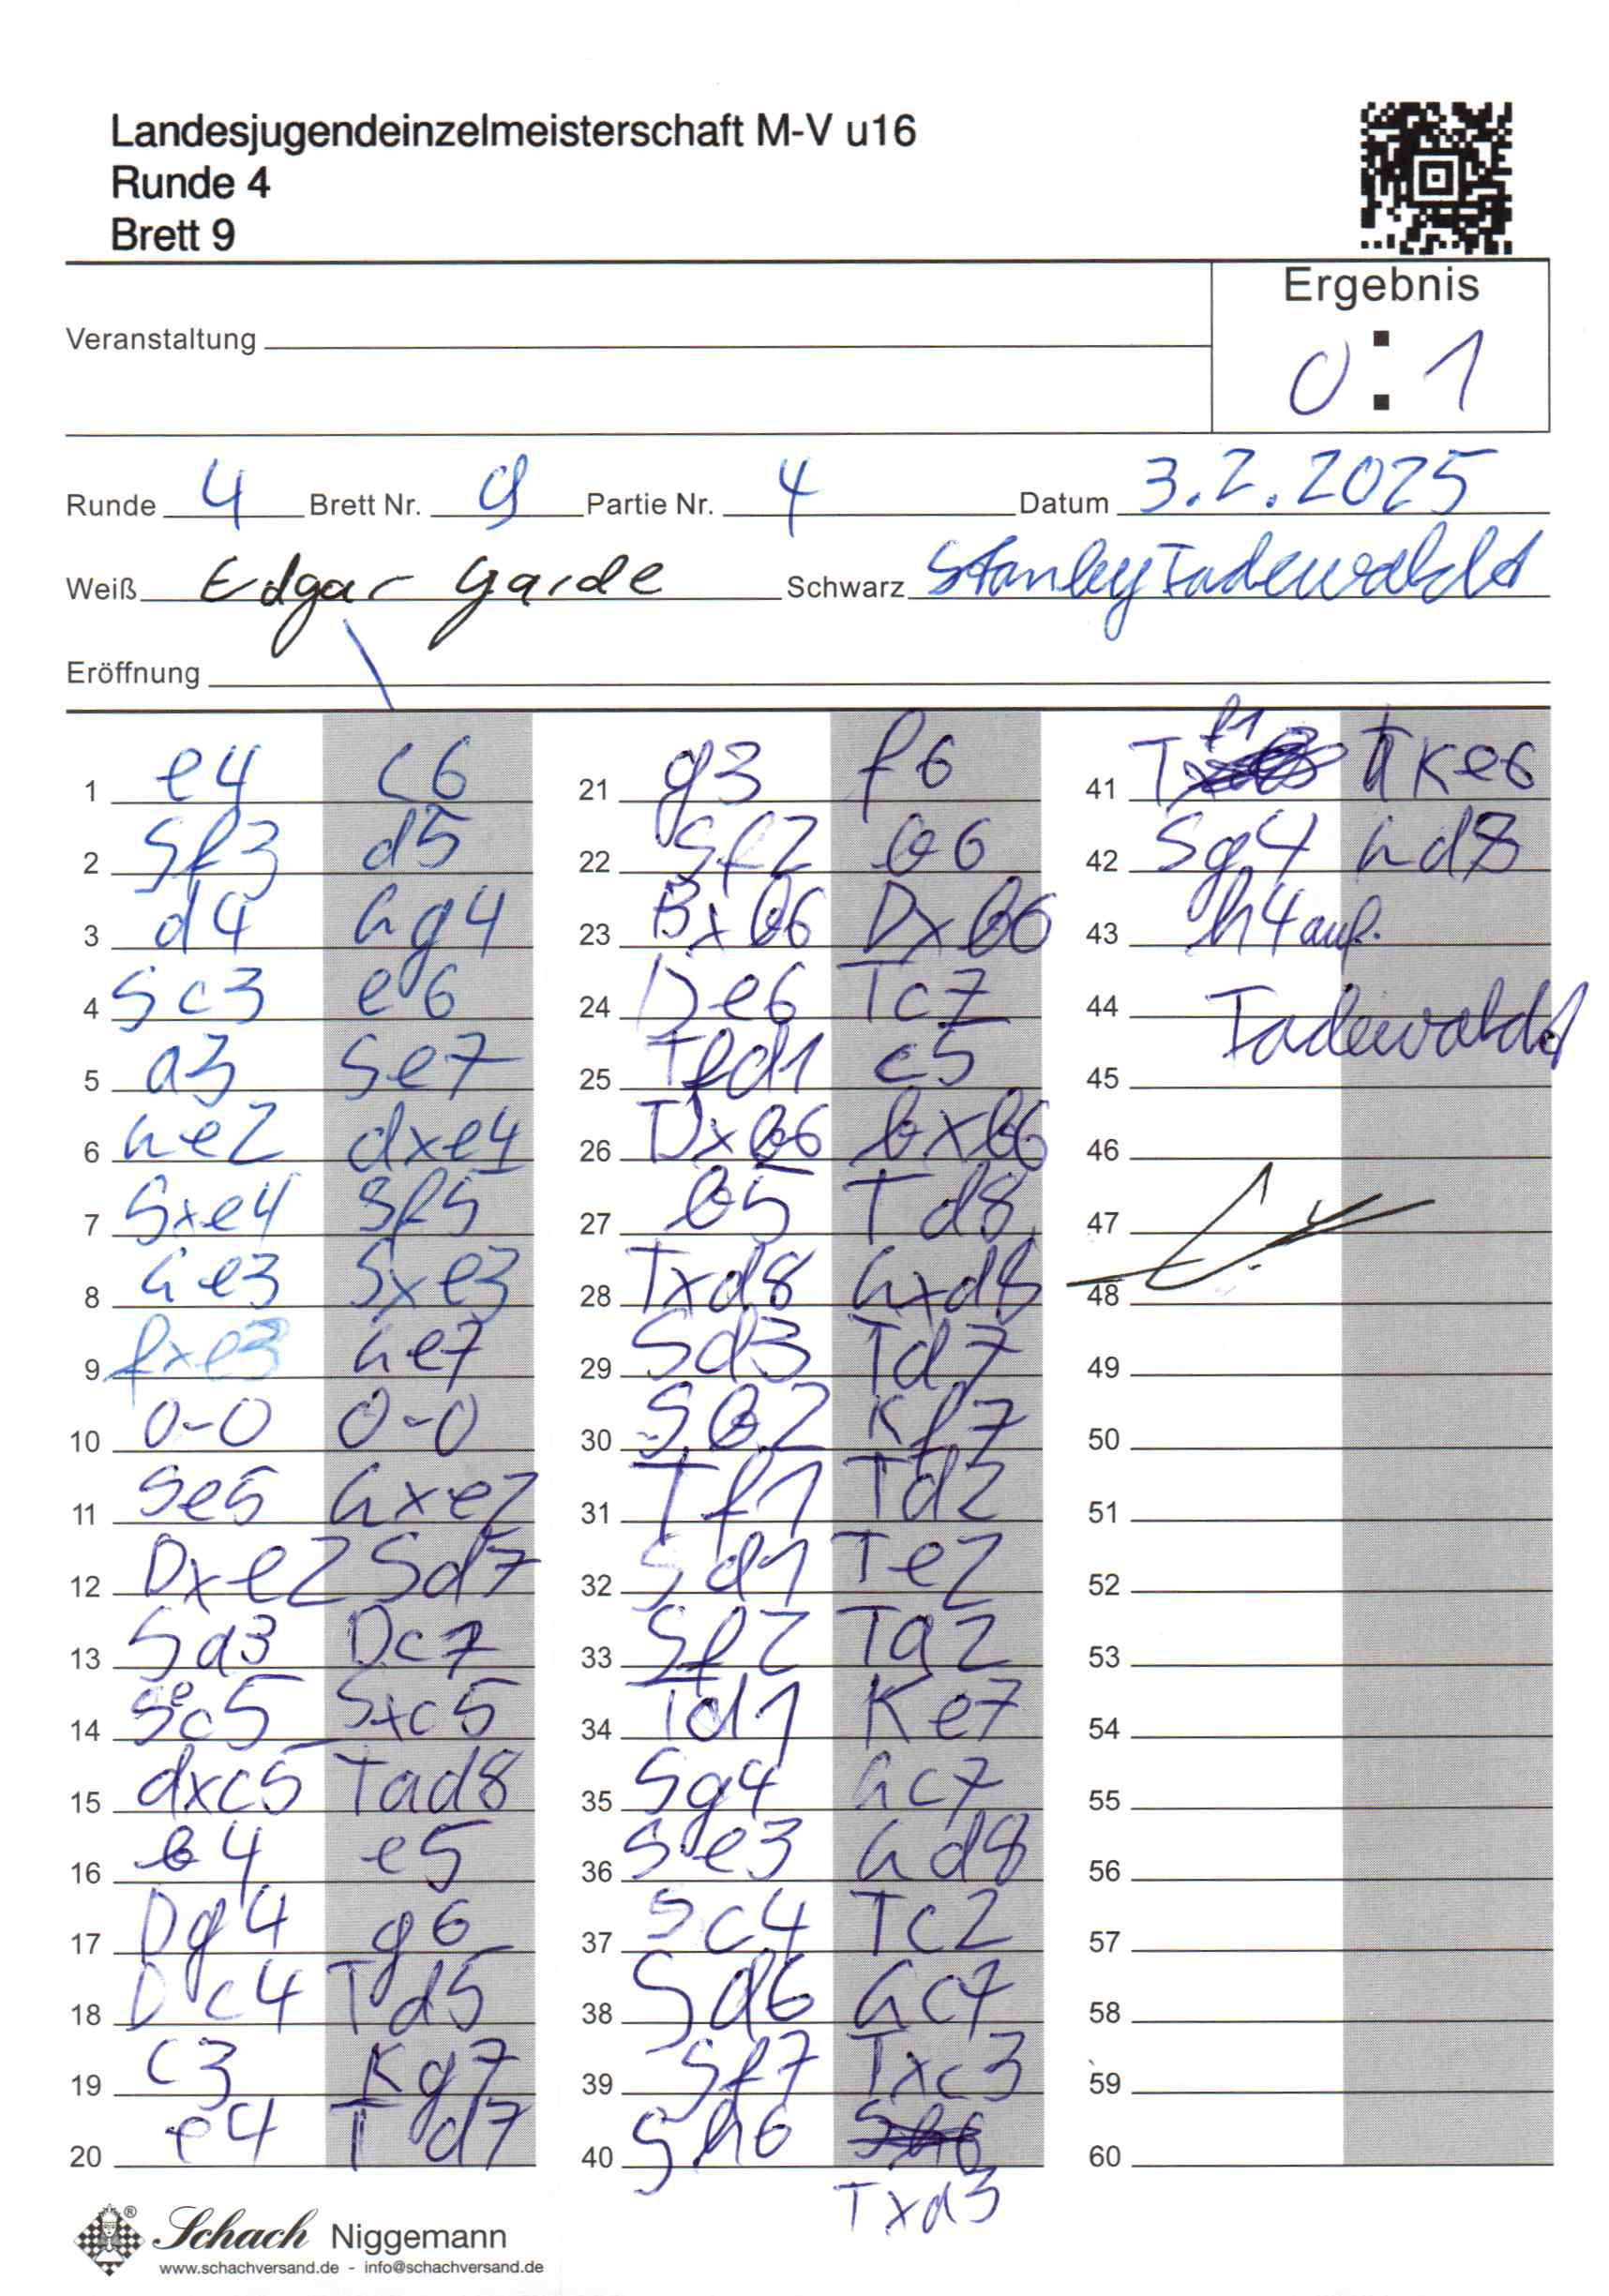 Landesjugendeinzelmeisterschaft M-V u16
Runde 4
Brett 9
Ergebnis
Veranstaltung
0 : 1
Runde 4 Brett Nr. 9 Partie Nr. 4 Datum 3.2.2025
Weiß Edgar Garde Schwarz Stanley Tadewaldd
Eröffnung
1 e4 c6
2 Sf3 d5
3 d4 Lg4
4 Sc3 e6
5 a3 Se7
6 Le2 dxe4
7 Sxe4 Sf5
8 Le3 Sxe3
9 fxe3 Le7
10 0-0 0-0
11 Se5 Lxe2
12 Dxe2 Sd7
13 Sd3 Dc7
14 Sec5 Sxc5
15 dxc5 Tad8
16 b4 e5
17 Dg4 g6
18 Dc4 Td5
19 c3 Kg7
20 e4 Td7
21 g3 f6
22 Sf2 b6
23 Bxb6 Dxb6
24 De6 Tc7
25 Tfd1 c5
26 Dxb6 bxb6
27 b5 Td8
28 Txd8 Lxd8
29 Sd3 Td7
30 Sb2 Kf7
31 Tf1 Td2
32 Sd1 Te2
33 Sf2 Ta2
34 Td1 Ke7
35 Sg4 Lc7
36 Se3 Ld8
37 Sc4 Tc2
38 Sd6 Lc7
39 Sf7 Txc3
40 Sh6 Txa3
41 Tf1 Ke6
42 Sg4 Ld8
43 h4 auf.
44 Tadewaldd
45
46
47
48
49
50
51
52
53
54
55
56
57
58
59
60
Schach Niggemann
www.schachversand.de - info@schachversand.de